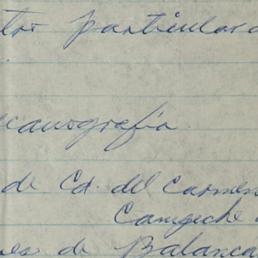 tor particular
canografía.
de Cd. del Carmen
Campeche
es de Balanca